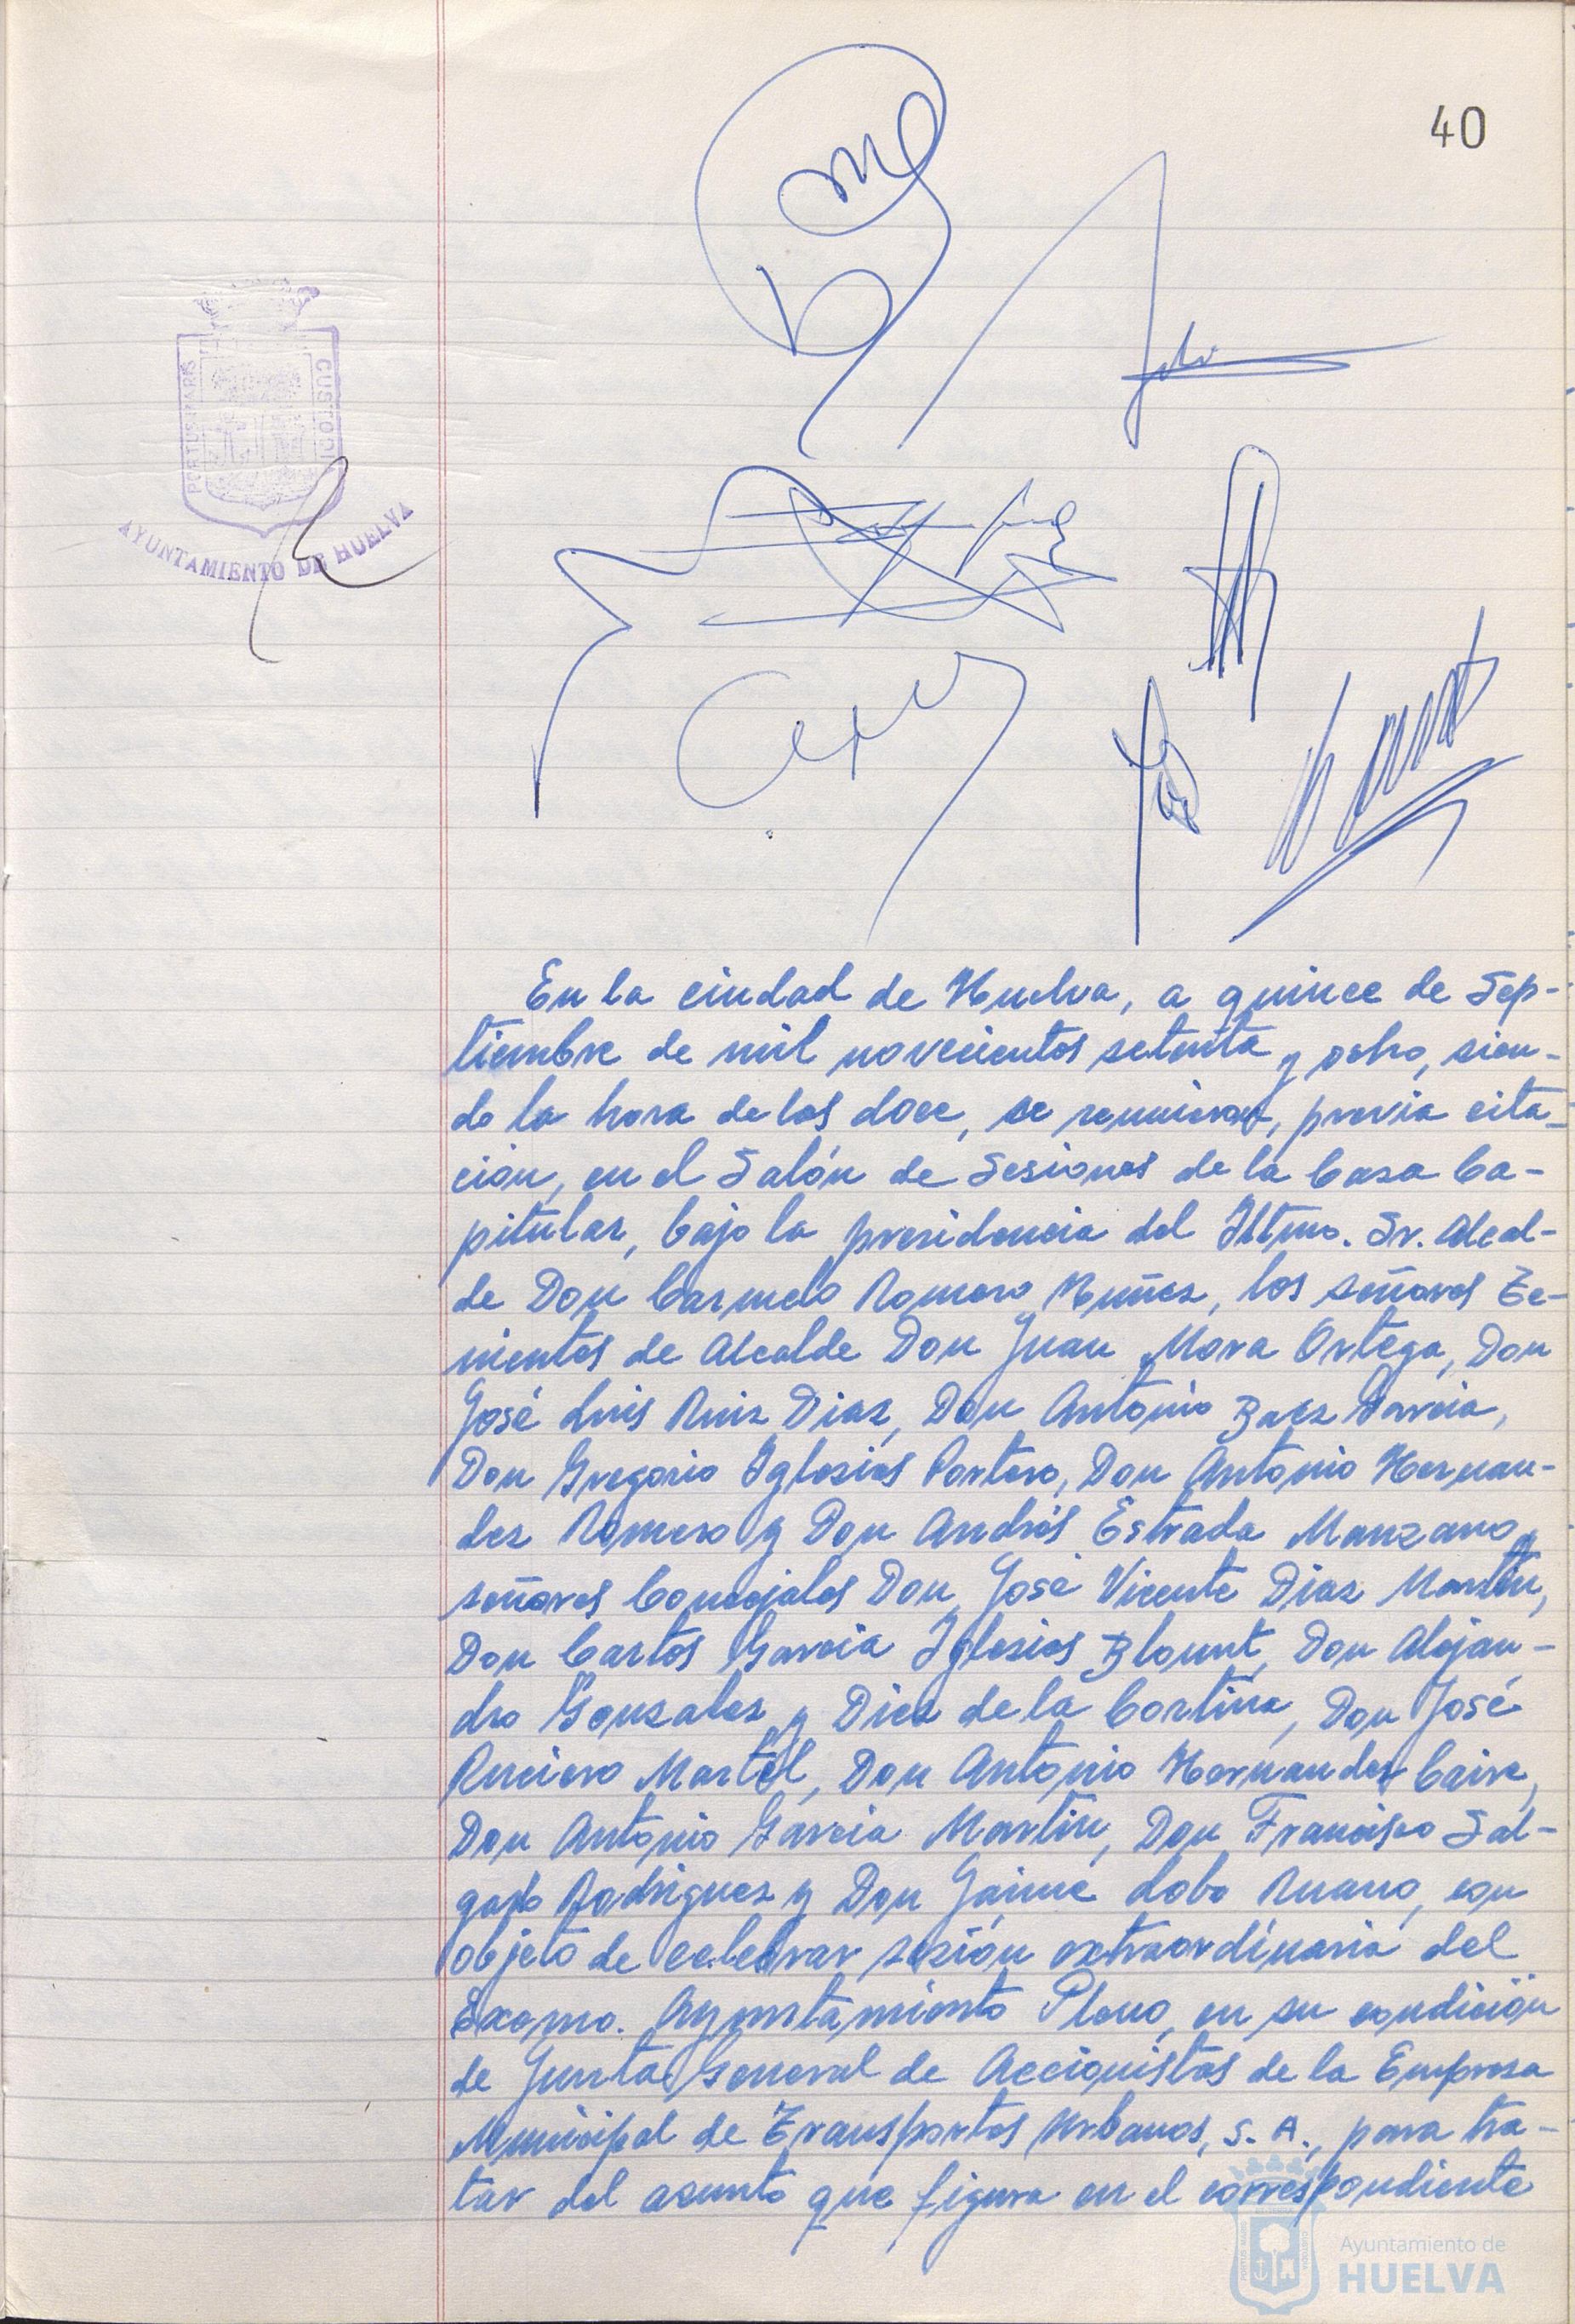 40
PORTUS MARIS
CUSTODI
AYUNTAMIENTO DE HUELVA
En la ciudad de Huelva, a quince de Sep-
tiembre de mil novecientos setenta y ocho, sien-
do la hora de las doce, se reunieron, previa cita-
cion, en el Salón de Sesiones de la Casa Ca-
pitular, bajo la presidencia del Iltmo. Sr. Alcal-
de Don Carmelo Romero Nuñez, los señores Te-
nientes de Alcalde Don Juan Mora Ortega, Don
José Luis Ruiz Diaz, Don Antonio Baez Garcia,
Don Gregorio Iglesias Portero, Don Antonio Hernan-
dez Romero y Don Andrés Estrada Manzano y
señores Concejales Don José Vicente Diaz Martin,
Don Carlos Garcia Iglesias Blount, Don Alejan-
dro Gonzalez y Diez de la Cortina, Don José
Ruciero Martel, Don Antonio Hernandez Caire,
Don Antonio Garcia Martin, Don Francisco Sal-
gado Rodriguez y Don Jaime Lobo Ruano, con
objeto de celebrar sesión extraordinaria del
Excmo. Ayuntamiento Pleno, en su condición
de Junta General de Accionistas de la Empresa
Municipal de Transportes Urbanos, S. A., para tra-
tar del asunto que figura en el correspondiente
Ayuntamiento de
HUELVA